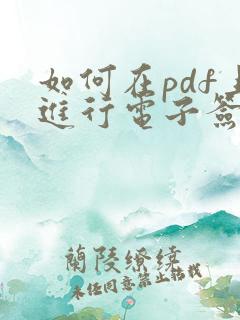 如何在pdf上
進行電子簽
蘭陵繚繞
未经同意禁止转载